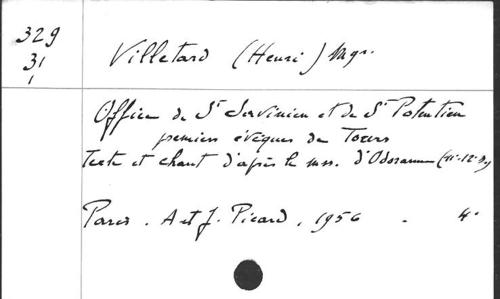 329
31
1
Villetard (Henri) Mgr.
Office de St Savinien et de St Potentien
premiers évêques de Tours
Texte et chant d'après le mss. d'Odoranne (11e-12e s)
Paris. A et J. Picard, 1956 - 4°